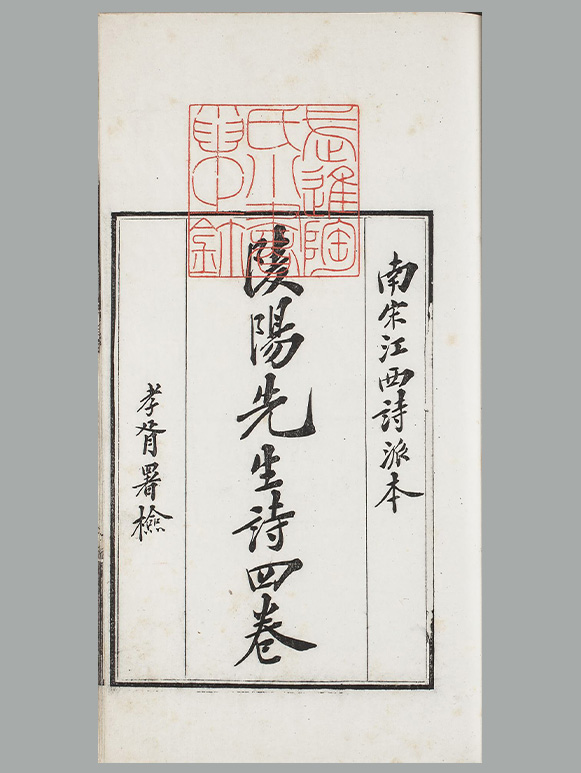 南宋江西詩派本
陵陽先生詩四卷
孝胥署檢
武進陶
氏